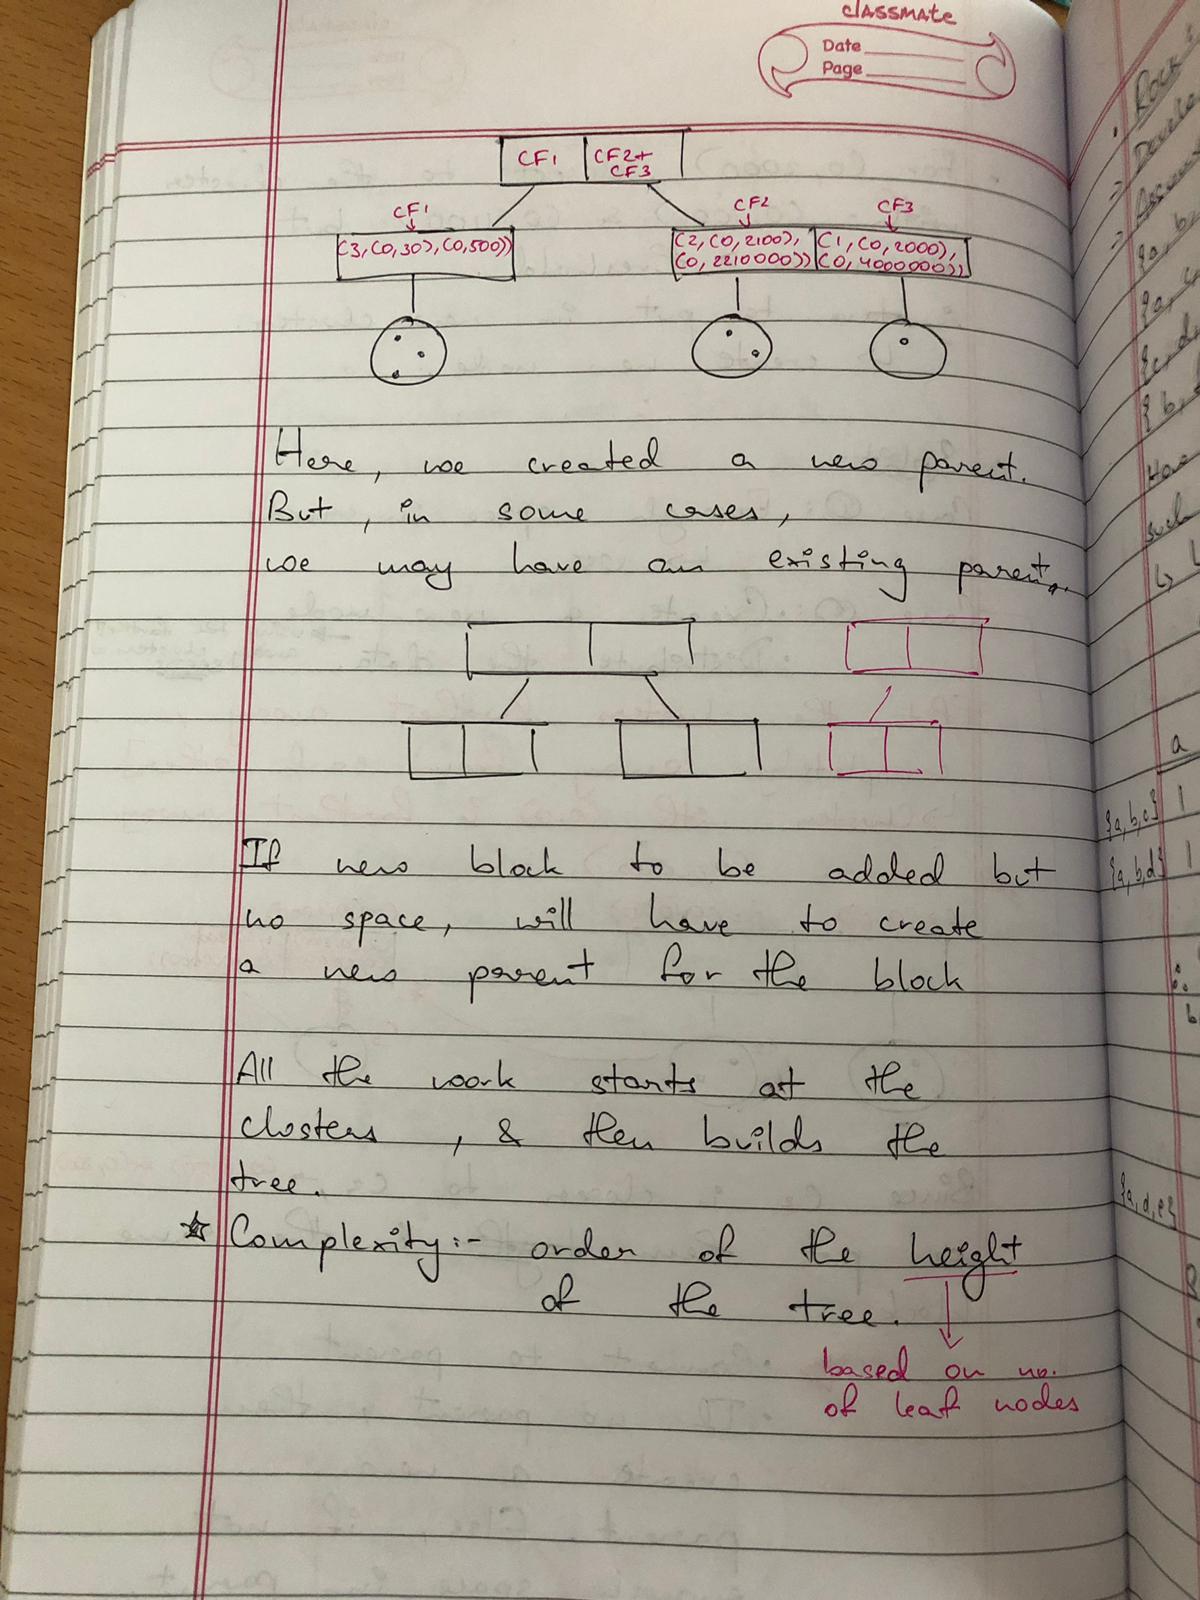 classmate
Date
Page
CF1 CF2+
CF3
CF1 CF2 CF3
(3,(0,30),(0,500)) (2,(0,2100), (1,(0,2000),
(0,2210000)) (0,4000000))
Here, we created a new parent.
But, in some cases,
we may have an existing parent.
If new block to be added but
no space, will have to create
a new parent for the block
All the work starts at the
closters, & then builds the
tree.
☆ Complexity:- order of the height
of the tree.
based on no.
of leaf nodes
a
{a,b,c} 1
{a,b,d} 1
{a,d,e}